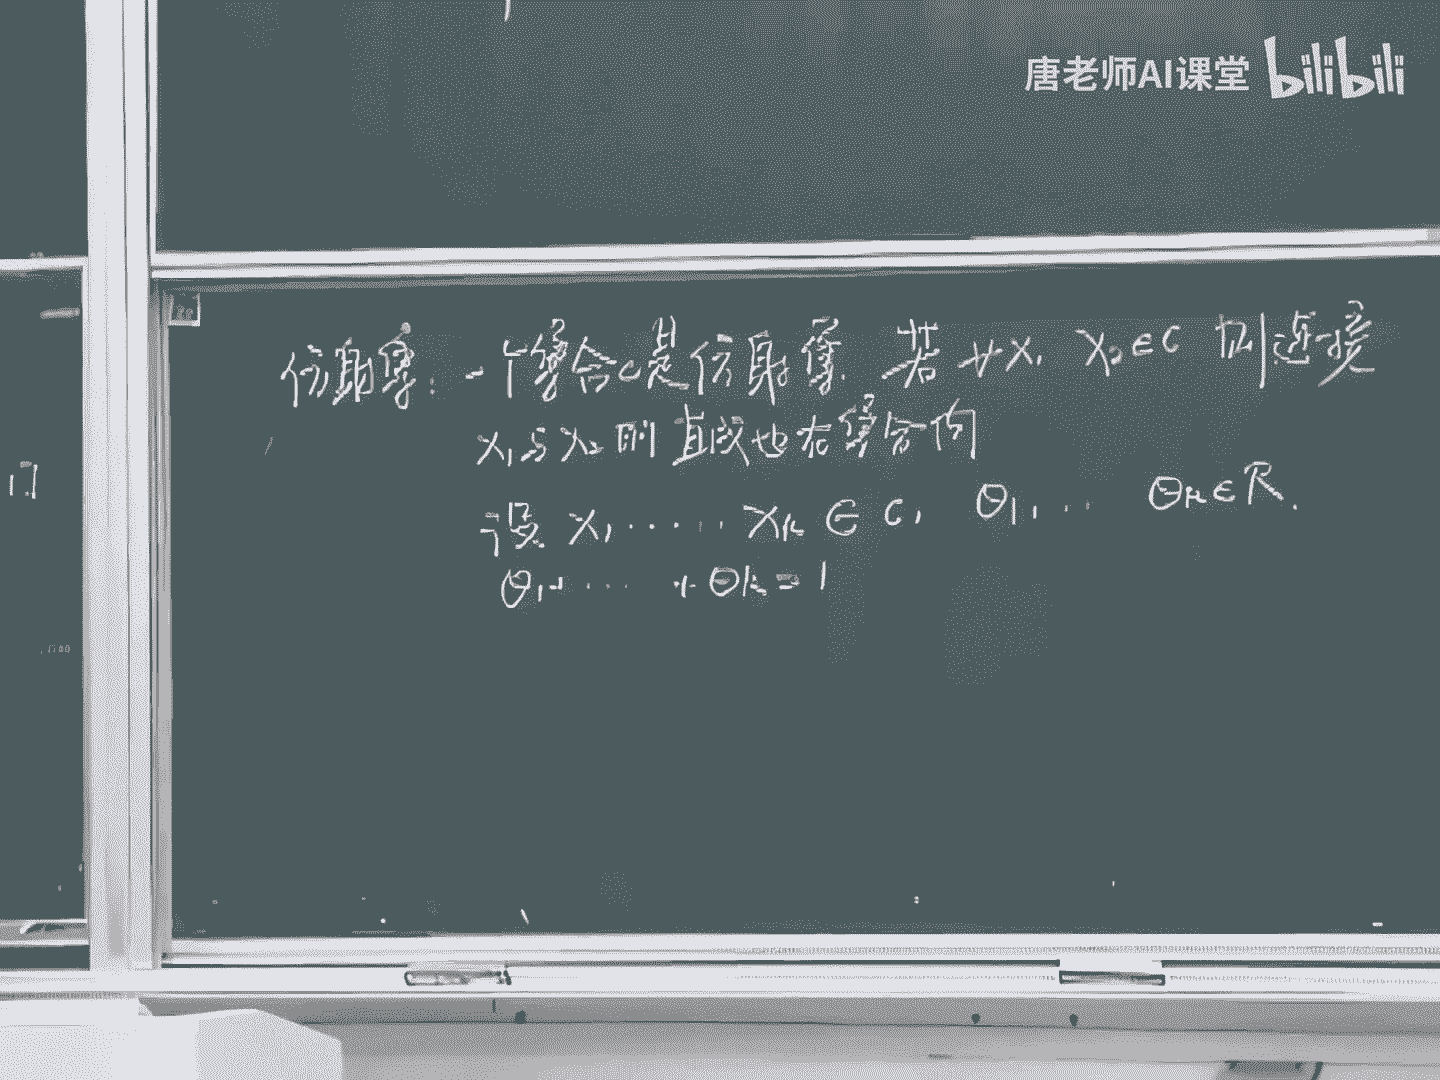 唐老师AI课堂 bilibili
仿射集：一个集合C是仿射集，若∀x₁, x₂∈C 则连接
x₁与x₂的直线也在集合内
设 x₁, ..... x_k ∈ C, θ₁, ... θ_k∈R.
θ₁+ ... + θ_k = 1